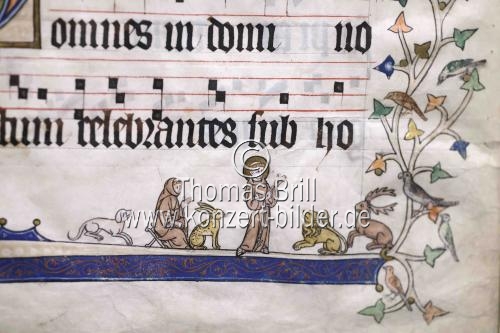 omnes in domi no
tum celebrantes sub ho
©
Thomas Brill
www.konzert-bilder.de